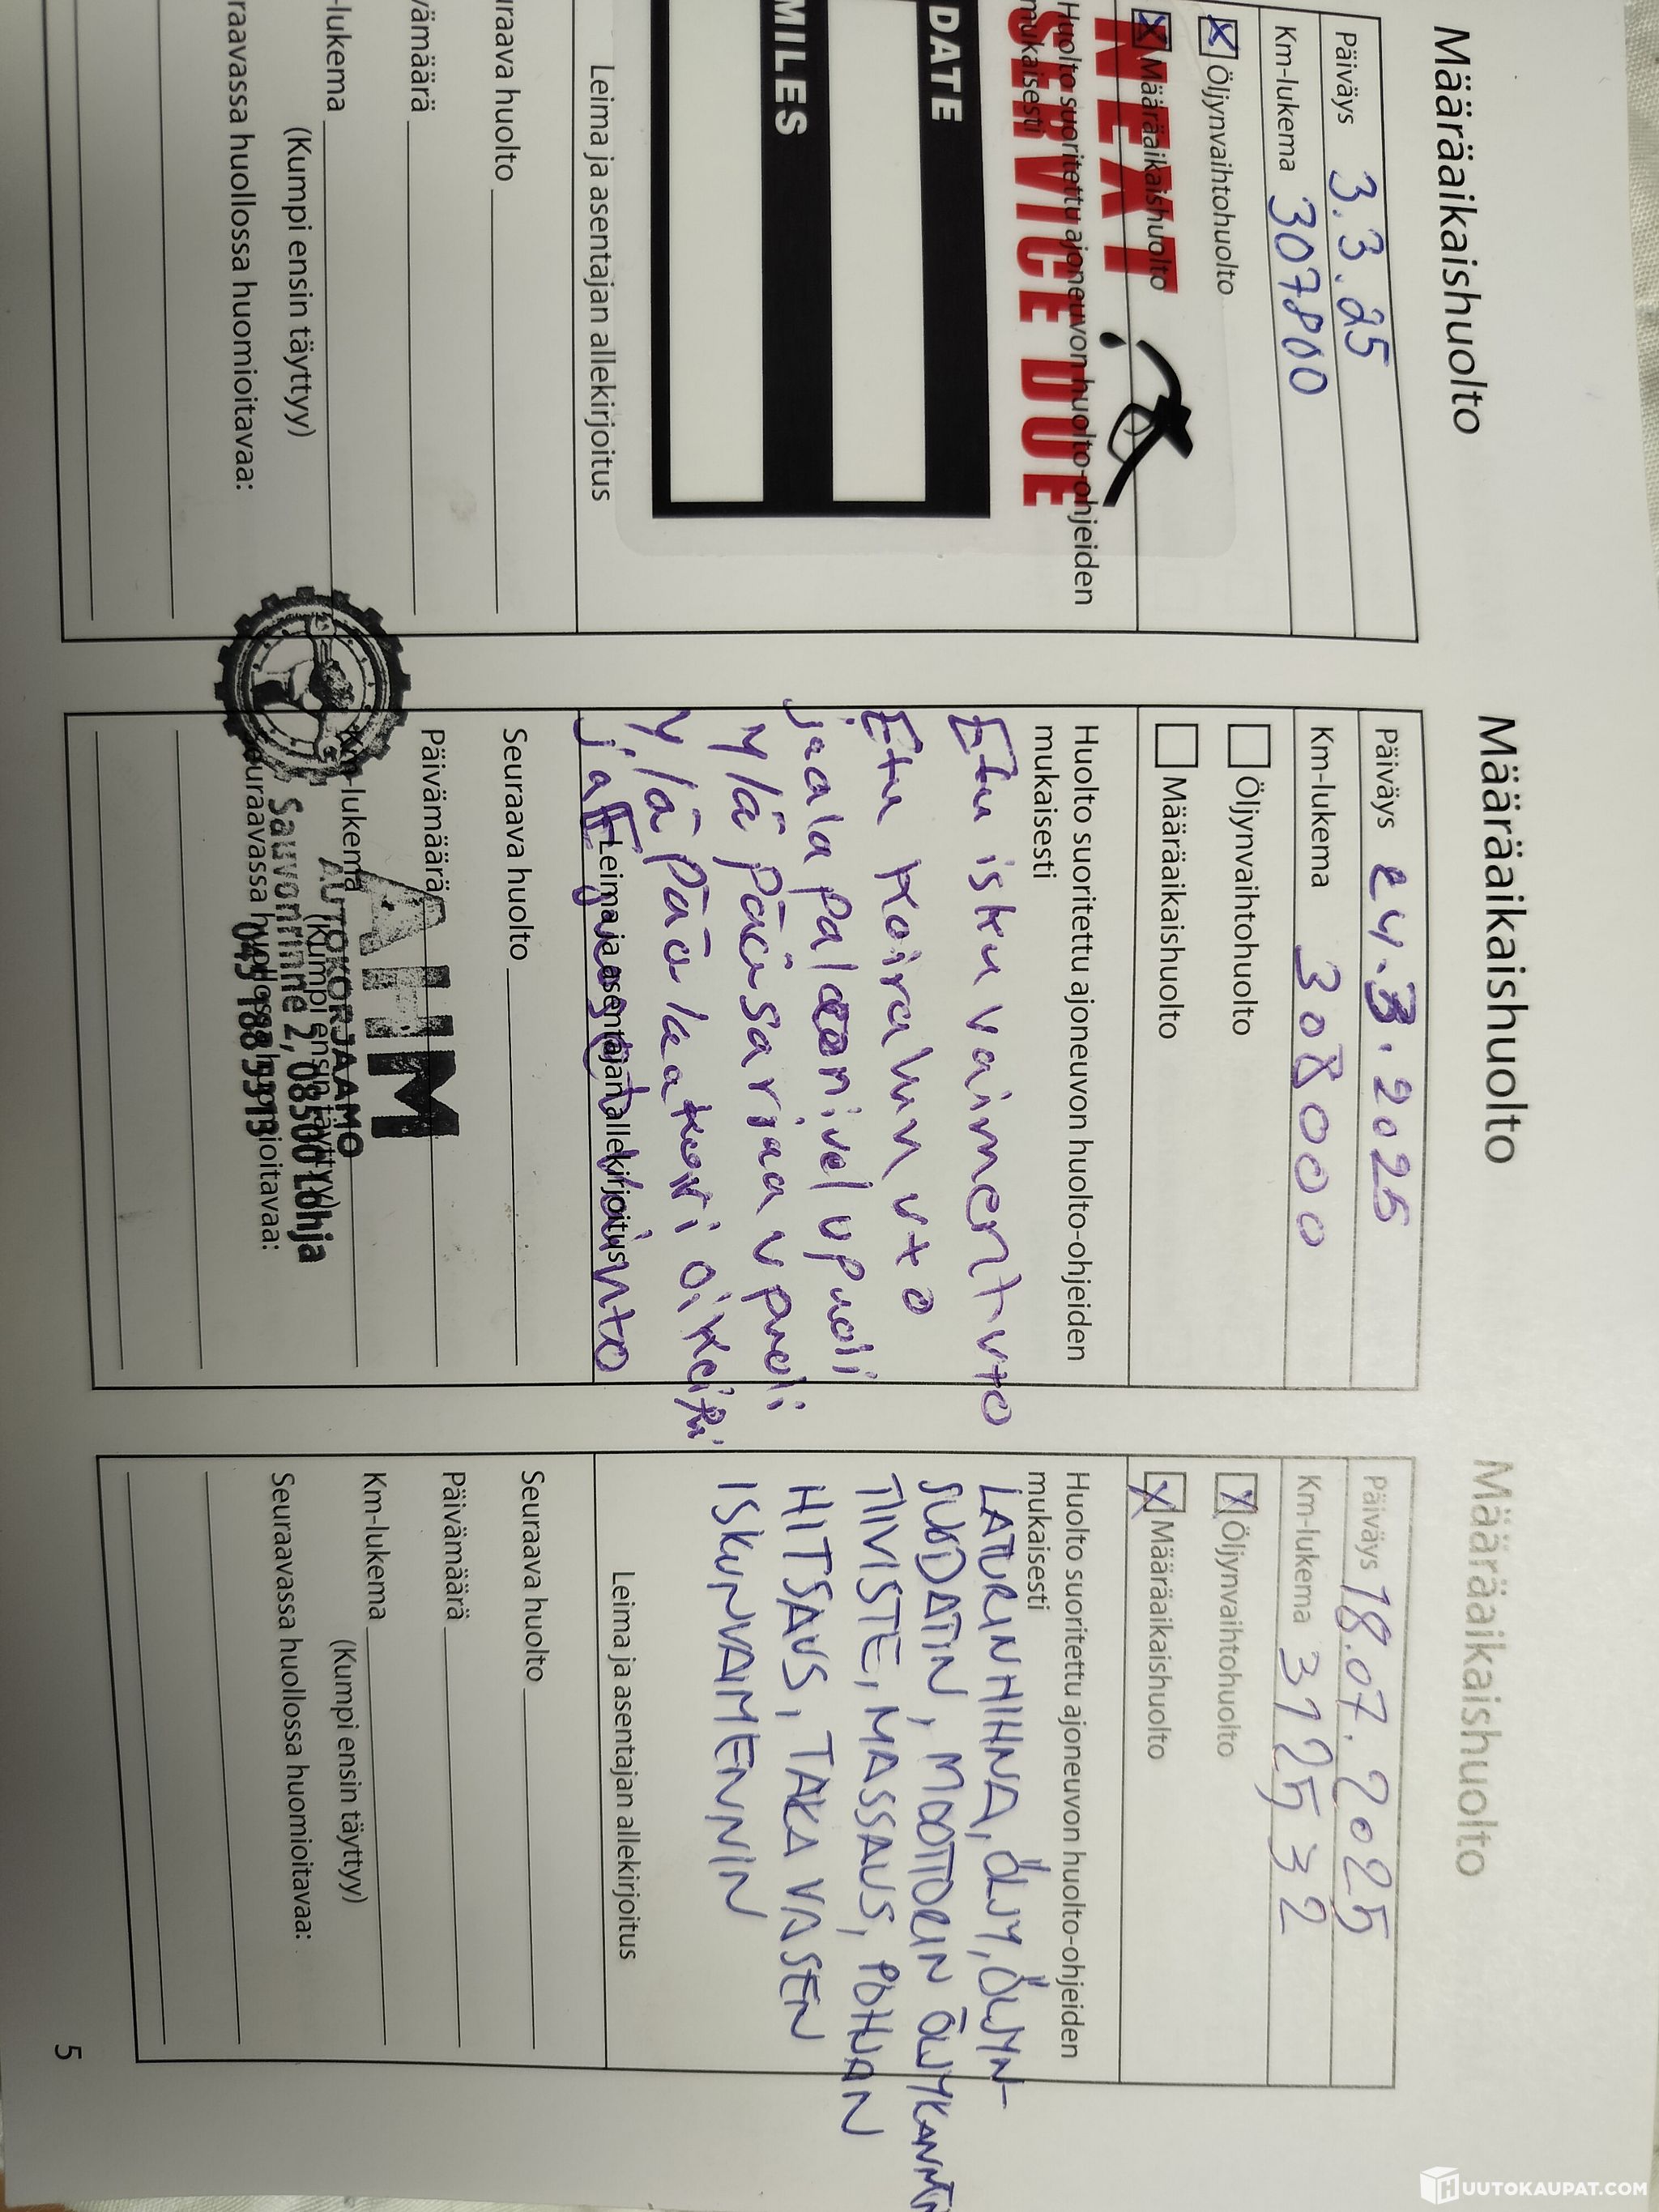 Määräaikaishuolto
Päiväys 3.3.25
Km-lukema 307800
Öljynvaihtohuolto
Määräaikaishuolto
Huolto suoritettu ajoneuvon huolto-ohjeiden
mukaisesti
NEXT
SERVICE DUE
DATE
MILES
Leima ja asentajan allekirjoitus
raava huolto
vämäärä
-lukema
(Kumpi ensin täyttyy)
raavassa huollossa huomioitavaa:
Määräaikaishuolto
Päiväys 24.3.2025
Km-lukema 308000
Öljynvaihtohuolto
Määräaikaishuolto
Huolto suoritettu ajoneuvon huolto-ohjeiden
mukaisesti
Etu iskuvaiment vto
Etu koiraluu vto
ja ala pallonivel v puoli
Yläpään sarjaa v puoli
Yläpää laakeri
ja
Leima ja asentajan allekirjoitus
Seuraava huolto
Päivämäärä
Km-lukema
(Kumpi ensin täyttyy)
Seuraavassa huollossa huomioitavaa:
AHM
AUTOKORJAAMO
Sauvonrinne 2, 08500 Lohja
Määräaikaishuolto
Päiväys 18.07.2025
Km-lukema 312532
Öljynvaihtohuolto
Määräaikaishuolto
Huolto suoritettu ajoneuvon huolto-ohjeiden
mukaisesti
LATURINHIHNA, ÖLJY, ÖLJYN-
SUODATIN, MOOTTORIN
TIIVISTE, MASSAUS, POHJAN
HITSAUS, TAKA VASEN
ISKUNVAIMENNIN
Leima ja asentajan allekirjoitus
Seuraava huolto
Päivämäärä
Km-lukema
(Kumpi ensin täyttyy)
Seuraavassa huollossa huomioitavaa:
5
HUUTOKAUPAT.COM